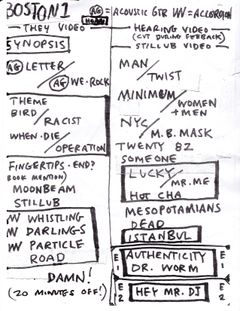 BOSTON 1
AG = ACOUSTIC GTR W = ACCORDION
THEY VIDEO
SYNOPSIS
AG LETTER
AG WE-ROCK
THEME
BIRD
RACIST
WHEN-DIE
OPERATION
FINGERTIPS-END?
BOOK MENTION)
MOONBEAM
STILLUB
W WHISTLING
W DARLING-S
W PARTICLE
ROAD
DAMN!
(20 MINUTES OFF!)
HEARING VIDEO
(CUT DURING FEEDBACK)
STILLUB VIDEO
MAN
TWIST
MINIMUM
WOMEN
+ MEN
NYC
M.B. MASK
TWENTY 82
SOMEONE
LUCKY
MR. ME
HOT CHA
MESOPOTAMIANS
DEAD
ISTANBUL
E1 AUTHENTICITY E1
DR. WORM
E2 HEY MR. DJ E2